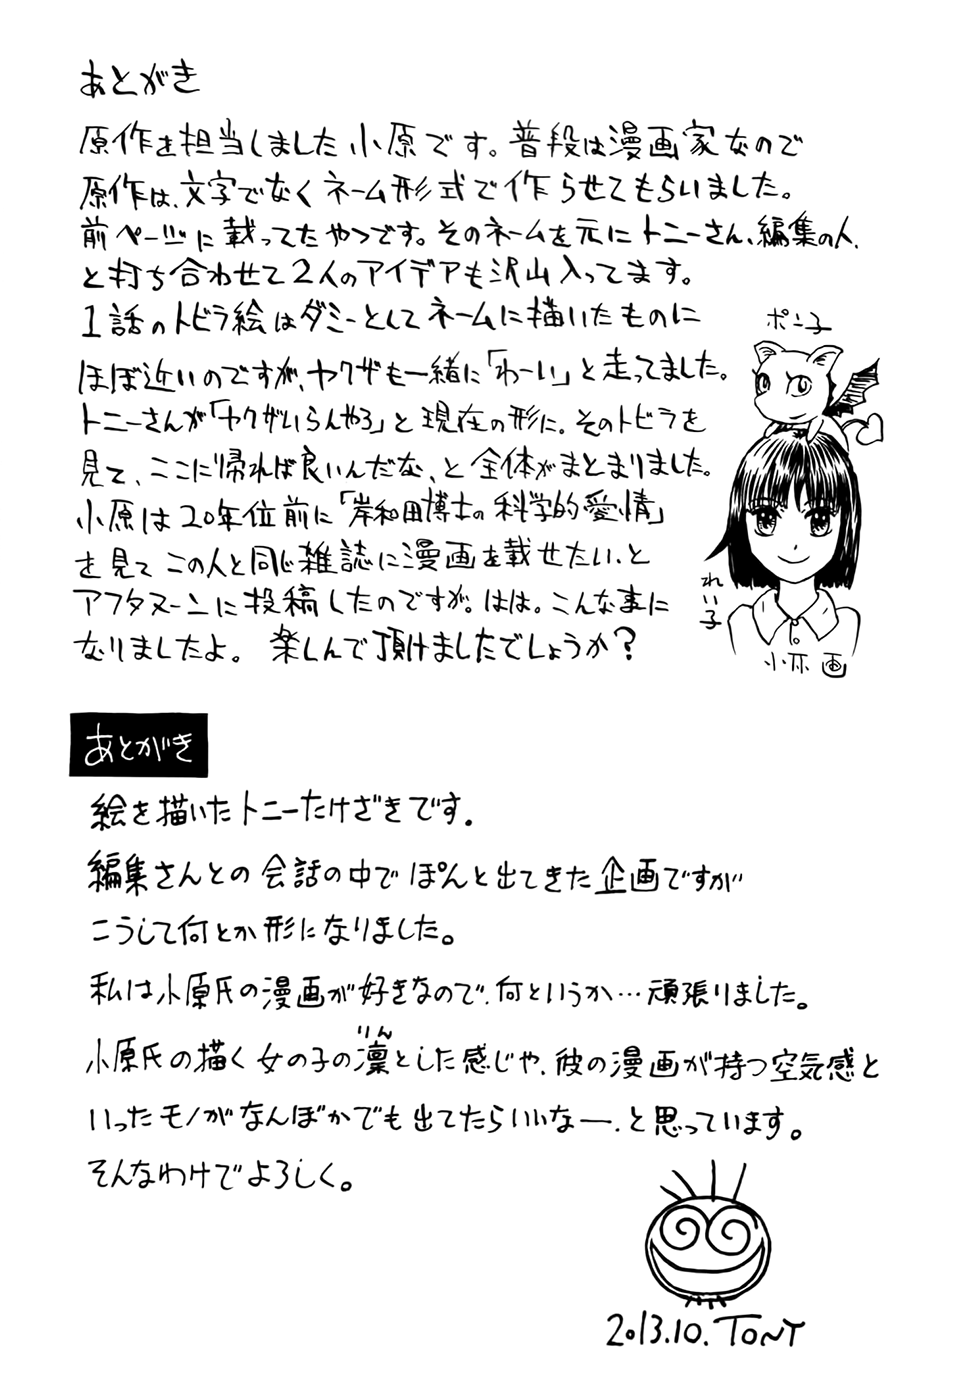 あとがき
原作を担当しました小原です。普段は漫画家なので
原作は、文字でなくネーム形式で作らせてもらいました。
前ページに載ってたやつです。そのネームを元にトニーさん、編集の人、
と打ち合わせて2人のアイデアも沢山入ってます。
1話のトビラ絵はダミーとしてネームに描いたものに
ほぼ近いのですが、ヤクザも一緒に「わーい」と走ってました。
トニーさんが「ヤクザいらんやろ」と現在の形に。そのトビラを
見て、ここに帰れば良いんだな、と全体がまとまりました。
小原は20年位前に「岸和田博士の科学的愛情」
を見てこの人と同じ雑誌に漫画を載せたい、と
アフタヌーンに投稿したのですが。はは。こんな事に
なりましたよ。 楽しんで頂けましたでしょうか?
ポン子
れい子
小原 画
あとがき
絵を描いたトニーたけざきです。
編集さんとの会話の中でぽんと出てきた企画ですが
こうして何とか形になりました。
私は小原氏の漫画が好きなので、何というか…頑張りました。
りん
小原氏の描く女の子の凛とした感じや、彼の漫画が持つ空気感と
いったモノがなんぼかでも出てたらいいなー、と思っています。
そんなわけでよろしく。
2013.10. TONY